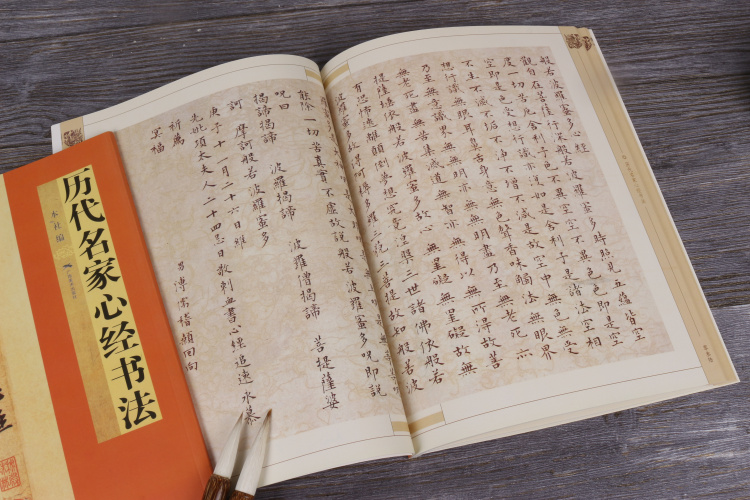 历代名家心经书法
本社编
般若波羅蜜多心經
觀自在菩薩行深般若波羅蜜多時照見五蘊皆空
度一切苦厄舍利子色不異空空不異色色即是空
空即是色受想行識亦復如是舍利子是諸法空相
不生不滅不垢不淨不增不減是故空中無色無受
想行識無眼耳鼻舌身意無色聲香味觸法無眼界
乃至無意識界無無明亦無無明盡乃至無老死亦
無老死盡無苦集滅道無智亦無得以無所得故菩
提薩埵依般若波羅蜜多故心無罣礙無罣礙故無
有恐怖遠離顛倒夢想究竟涅槃三世諸佛依般若
波羅蜜多故得阿耨多羅三藐三菩提故知般若波
能除一切苦真實不虛故說般若波羅蜜多咒即說
咒曰
揭諦揭諦 波羅揭諦 波羅僧揭諦 菩提薩婆
訶 摩訶般若波羅蜜多
庚子十一月二十六日維
先妣項太夫人二十四忌日敬刺血書心經追遠永慕
祈薦
冥福
稽顙回向